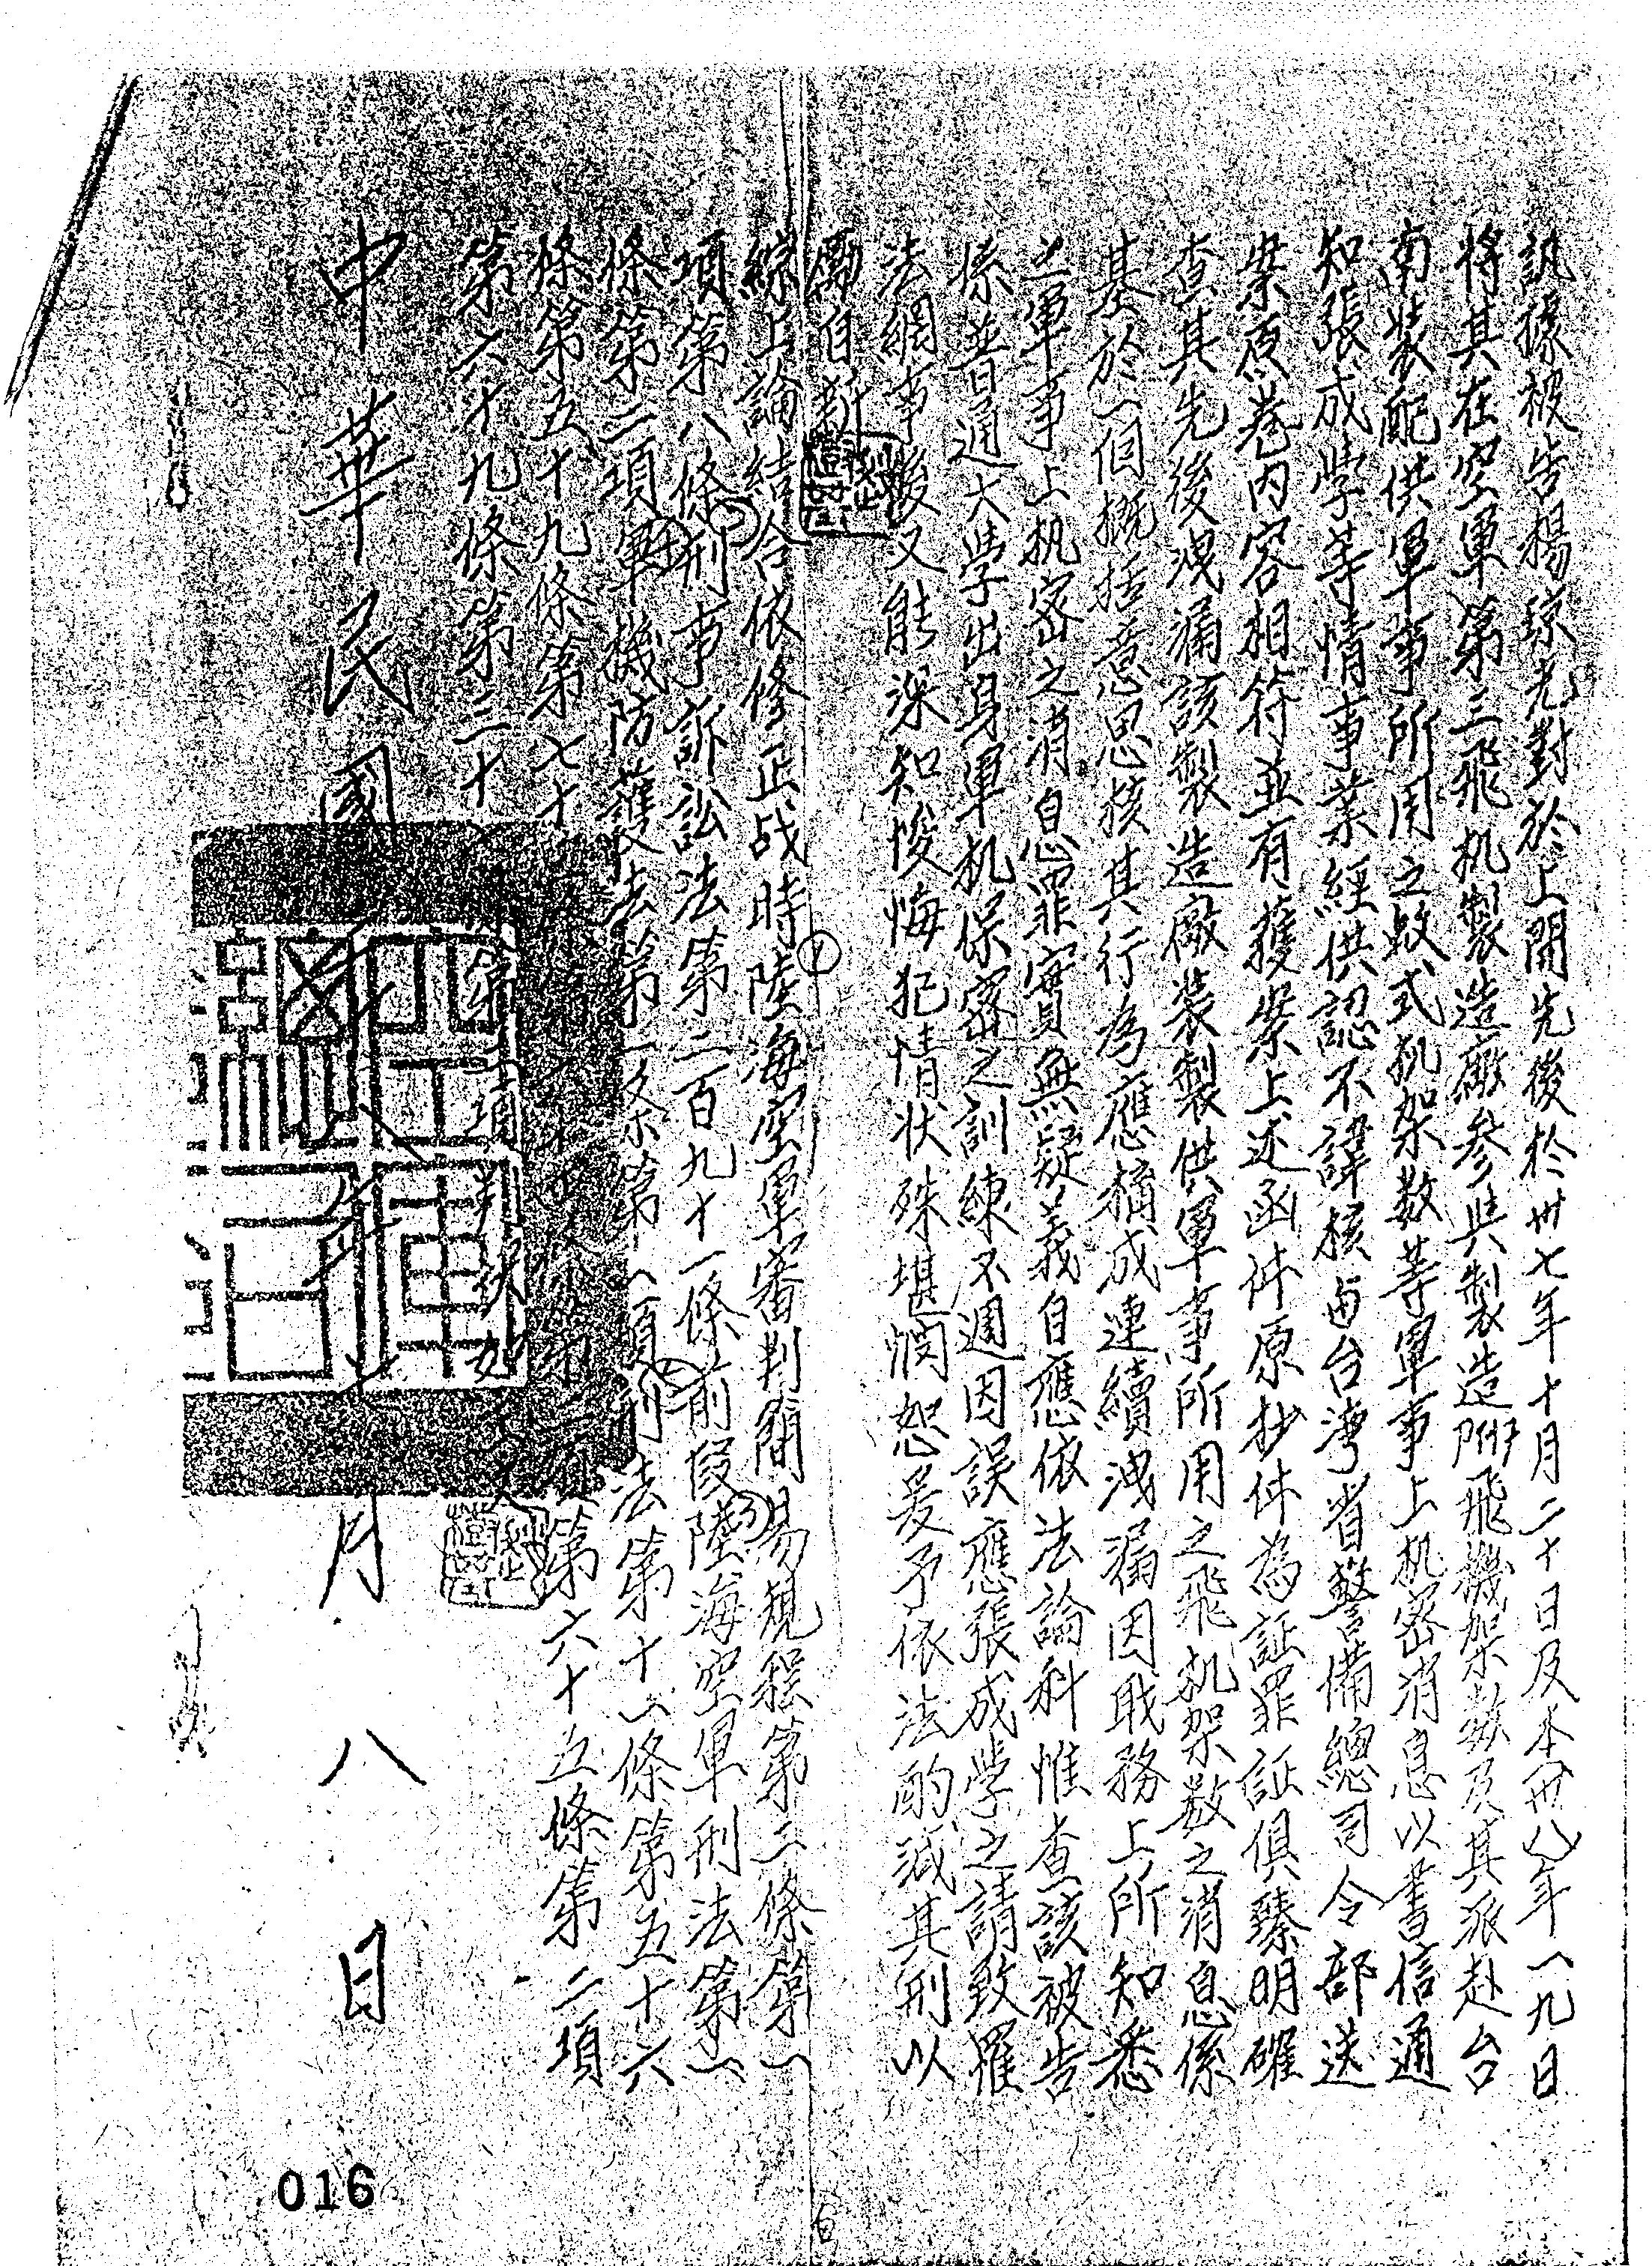 訊據被告楊琼光對於上開先後於卅七年十月二十日及本(卅八)年一九日
將其在空軍第三飛机製造廠參與製造附飛機架数及其派赴台
南裝配供軍事所用之欵式机架数等軍事上机密消息以書信通
知張成学等情事業經供認不諱核与台湾省警備總司令部送
案原卷内容相符並有獲案上述函件原抄件為証罪証俱臻明確
查其先後洩漏該製造廠裝製供軍事所用之飛机架数之消息係
基於一個概括意思核其行為應構成連續洩漏因戢務上所知悉
之軍事上机密之消息罪實無疑義自應依法論科惟查該被告
係普通大学出身軍机保密之訓練不週因誤應張成学之請致罹
法網事後又能深知悛悔犯情状殊堪憫恕爰予依法酌減其刑以
勵自新
綜上論結合依修正战時陸海空軍審判簡易規程第二條第一
項第八條刑事訴訟法第二百九十一條前段陸海空軍刑法第一
條第二項軍機防護法第一条第一項刑法第十一條第五十六
條第五十九條第七十 第六十五條第二項
第六十九條第三十 項判決如
中華民國 年 月八日
016